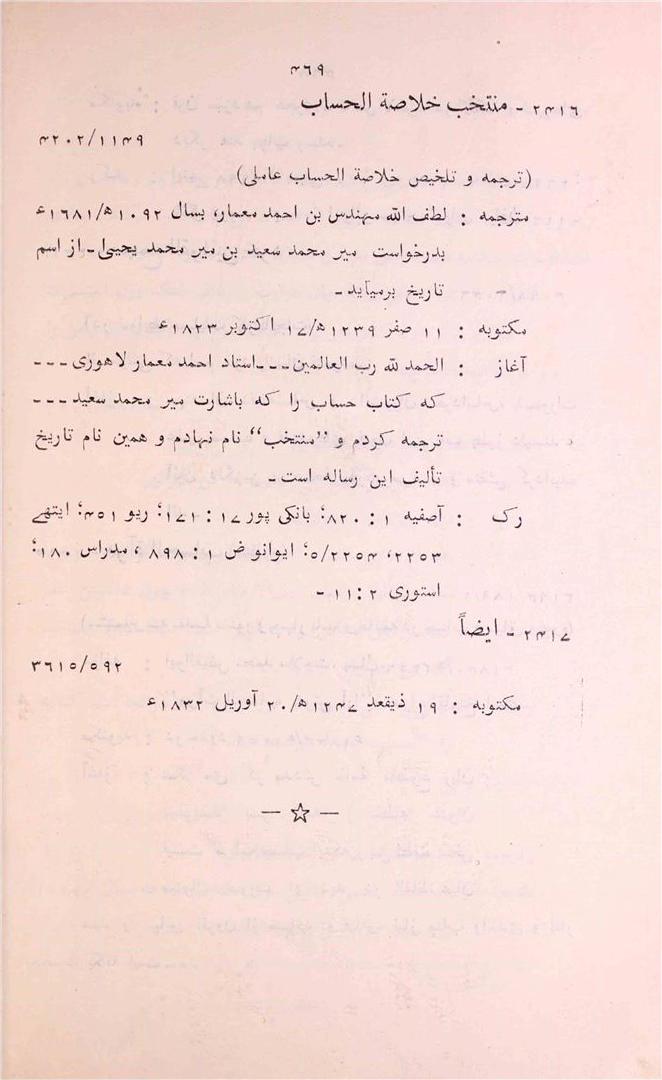 ۴۶۹
۲۴۱۶ - منتخب خلاصة الحساب
۴۲۰۲/۱۱۴۹
(ترجمه و تلخیص خلاصة الحساب عاملی)
مترجمه : لطف الله مهندس بن احمد معمار، بسال ۱۰۹۲ھ/۱۶۸۱ء
بدرخواست میر محمد سعید بن میر محمد یحییٰ۔ از اسم
تاریخ برمیاید۔
مکتوبه : ۱۱ صفر ۱۲۳۹ھ/۱۷ اکتوبر ۱۸۲۳ء
آغاز : الحمد لله رب العالمین۔۔۔استاد احمد معمار لاهوری۔۔۔
که کتاب حساب را که باشارت میر محمد سعید۔۔۔
ترجمه کردم و ”منتخب“ نام نهادم و همین نام تاریخ
تألیف این رساله است۔
رک : آصفیه ۱ : ۸۲۰؛ بانکی پور ۱۷ : ۱۷۱؛ ریو ۴۵۱؛ ایتھے
۲۲۵۳، ۵/۲۲۵۴؛ ایوانو ض ۱ : ۸۹۸، مدراس ۱۸۰؛
استوری ۲ : ۱۱ -
۲۴۱۷ - ایضاً
۳۶۱۵/۵۹۲
مکتوبه : ۱۹ ذیقعد ۱۲۴۷ھ/۲۰ آوریل ۱۸۳۲ء
— ☆ —